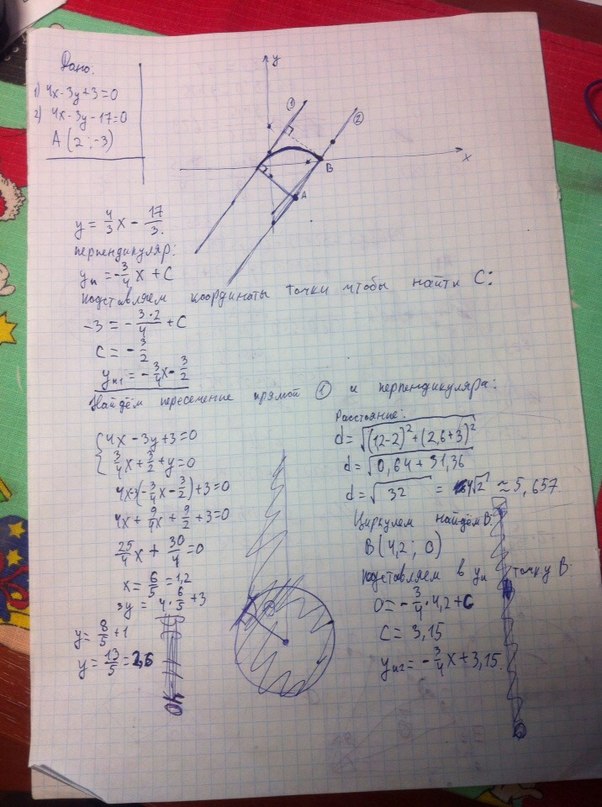 Дано.
1) 4x-3y+3=0
2) 4x-3y-17=0
A (2 ; -3)
y
①
②
B
x
A
y = 4/3 x - 17/3.
перпендикуляр:
yп = -3/4 x + C
Подставляем координаты точки чтобы найти C:
-3 = -3·2/4 + C
C = -3/2
yп1 = -3/4 x - 3/2
Найдём пересечение прямой ① и перпендикуляра:
{ 4x - 3y + 3 = 0
3/4 x + 3/2 + y = 0
4x-3(-3/4 x - 3/2)+3=0
4x + 9/4 x + 9/2 + 3 = 0
25/4 x + 30/4 = 0
x = 6/5 = 1,2
3y = 4·6/5 + 3
y = 8/5 + 1
y = 13/5 = 2,6
Расстояние:
d = √((12-2)² + (2,6+3)²)
d = √(0,64 + 31,36)
d = √32 = 4√2 ≈ 5,657
Циркулем найдём B:
B (4,2 ; 0)
Подставляем в yп точку B:
0 = -3/4 · 4,2 + C
C = 3,15
yп2 = -3/4 x + 3,15.